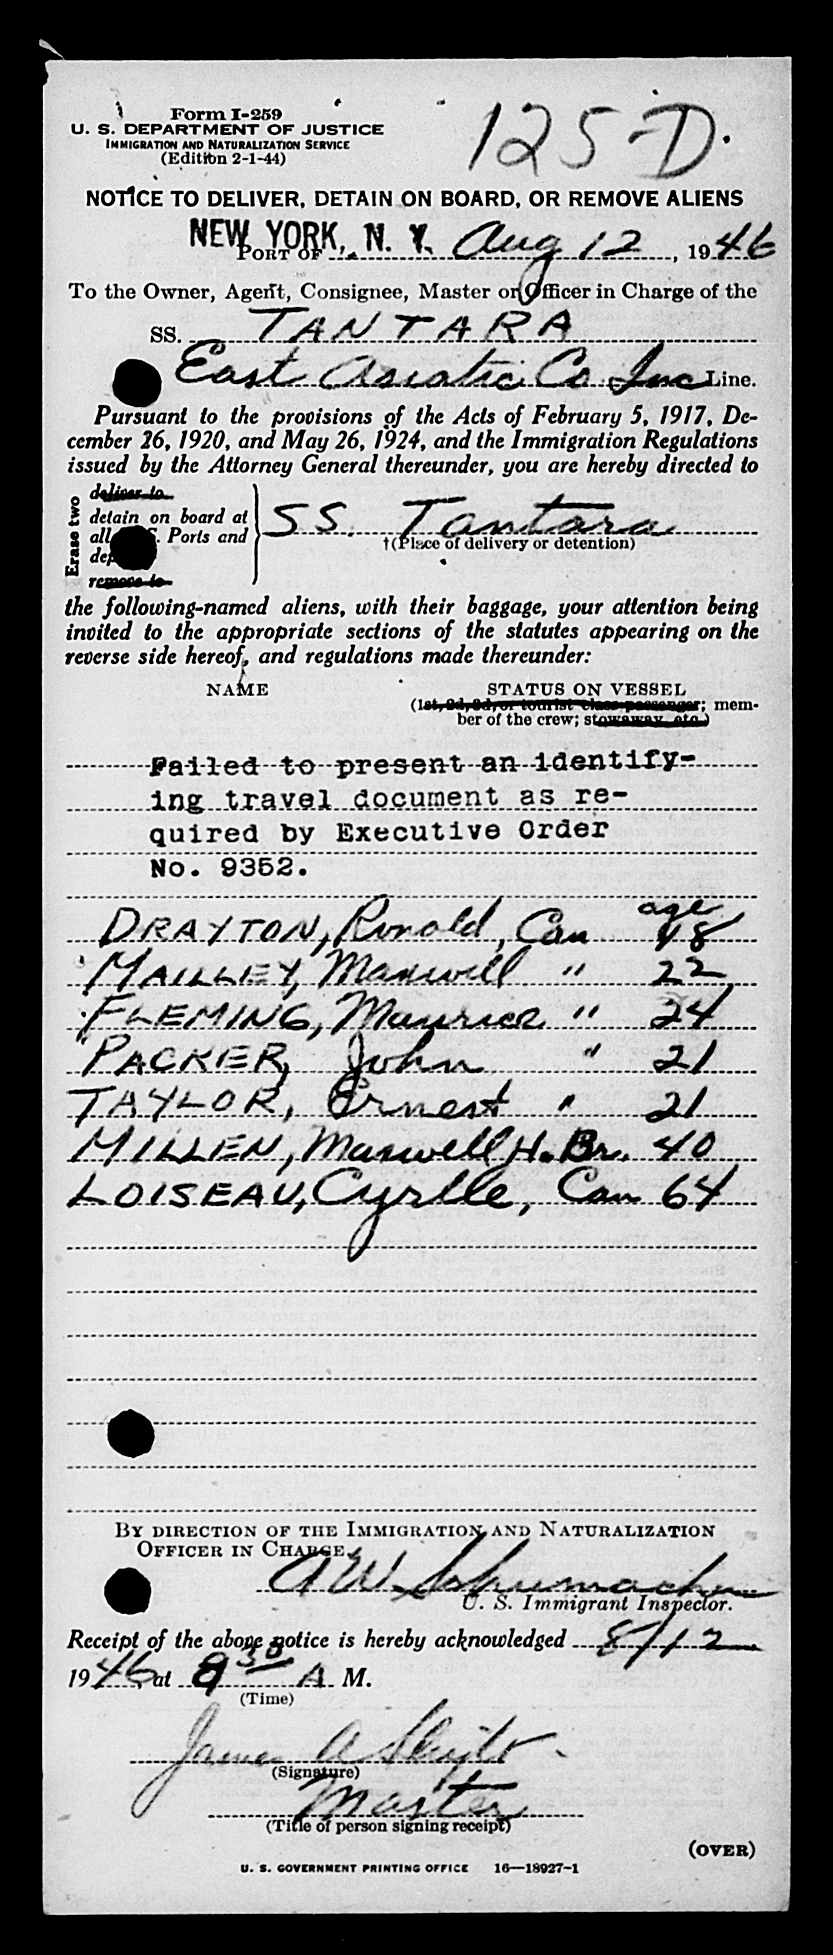 Form I-259
125-D.
U. S. DEPARTMENT OF JUSTICE
IMMIGRATION AND NATURALIZATION SERVICE
(Edition 2-1-44)
NOTICE TO DELIVER, DETAIN ON BOARD, OR REMOVE ALIENS
NEW YORK, N. Y.
PORT OF Aug 12, 1946
To the Owner, Agent, Consignee, Master or Officer in Charge of the
SS. TANTARA
East Asiatic Co Inc Line.
Pursuant to the provisions of the Acts of February 5, 1917, De-
cember 26, 1920, and May 26, 1924, and the Immigration Regulations
issued by the Attorney General thereunder, you are hereby directed to
Erase two
deliver to
detain on board at
all Ports and SS. Tantara
†(Place of delivery or detention)
remove to
the following-named aliens, with their baggage, your attention being
invited to the appropriate sections of the statutes appearing on the
reverse side hereof, and regulations made thereunder:
NAME STATUS ON VESSEL
(1st, 2d, 3d, or tourist class passenger; mem-
ber of the crew; stowaway, etc.)
Failed to present an identify-
ing travel document as re-
quired by Executive Order
No. 9352.
age
DRAYTON, Ronald, Can 18
MAILLEY, Maxwell " 22
FLEMING, Maurice " 24
PACKER, John " 21
TAYLOR, Ernest " 21
MILLEN, Maxwell H. Br. 40
LOISEAU, Cyrlle, Can 64
BY DIRECTION OF THE IMMIGRATION AND NATURALIZATION
OFFICER IN CHARGE.
A W. Schumacher
U. S. Immigrant Inspector.
Receipt of the above notice is hereby acknowledged 8/12
1946, at 8 30 A M.
(Time)
James A
(Signature)
Master
(Title of person signing receipt)
(OVER)
U. S. GOVERNMENT PRINTING OFFICE 16—18927-1